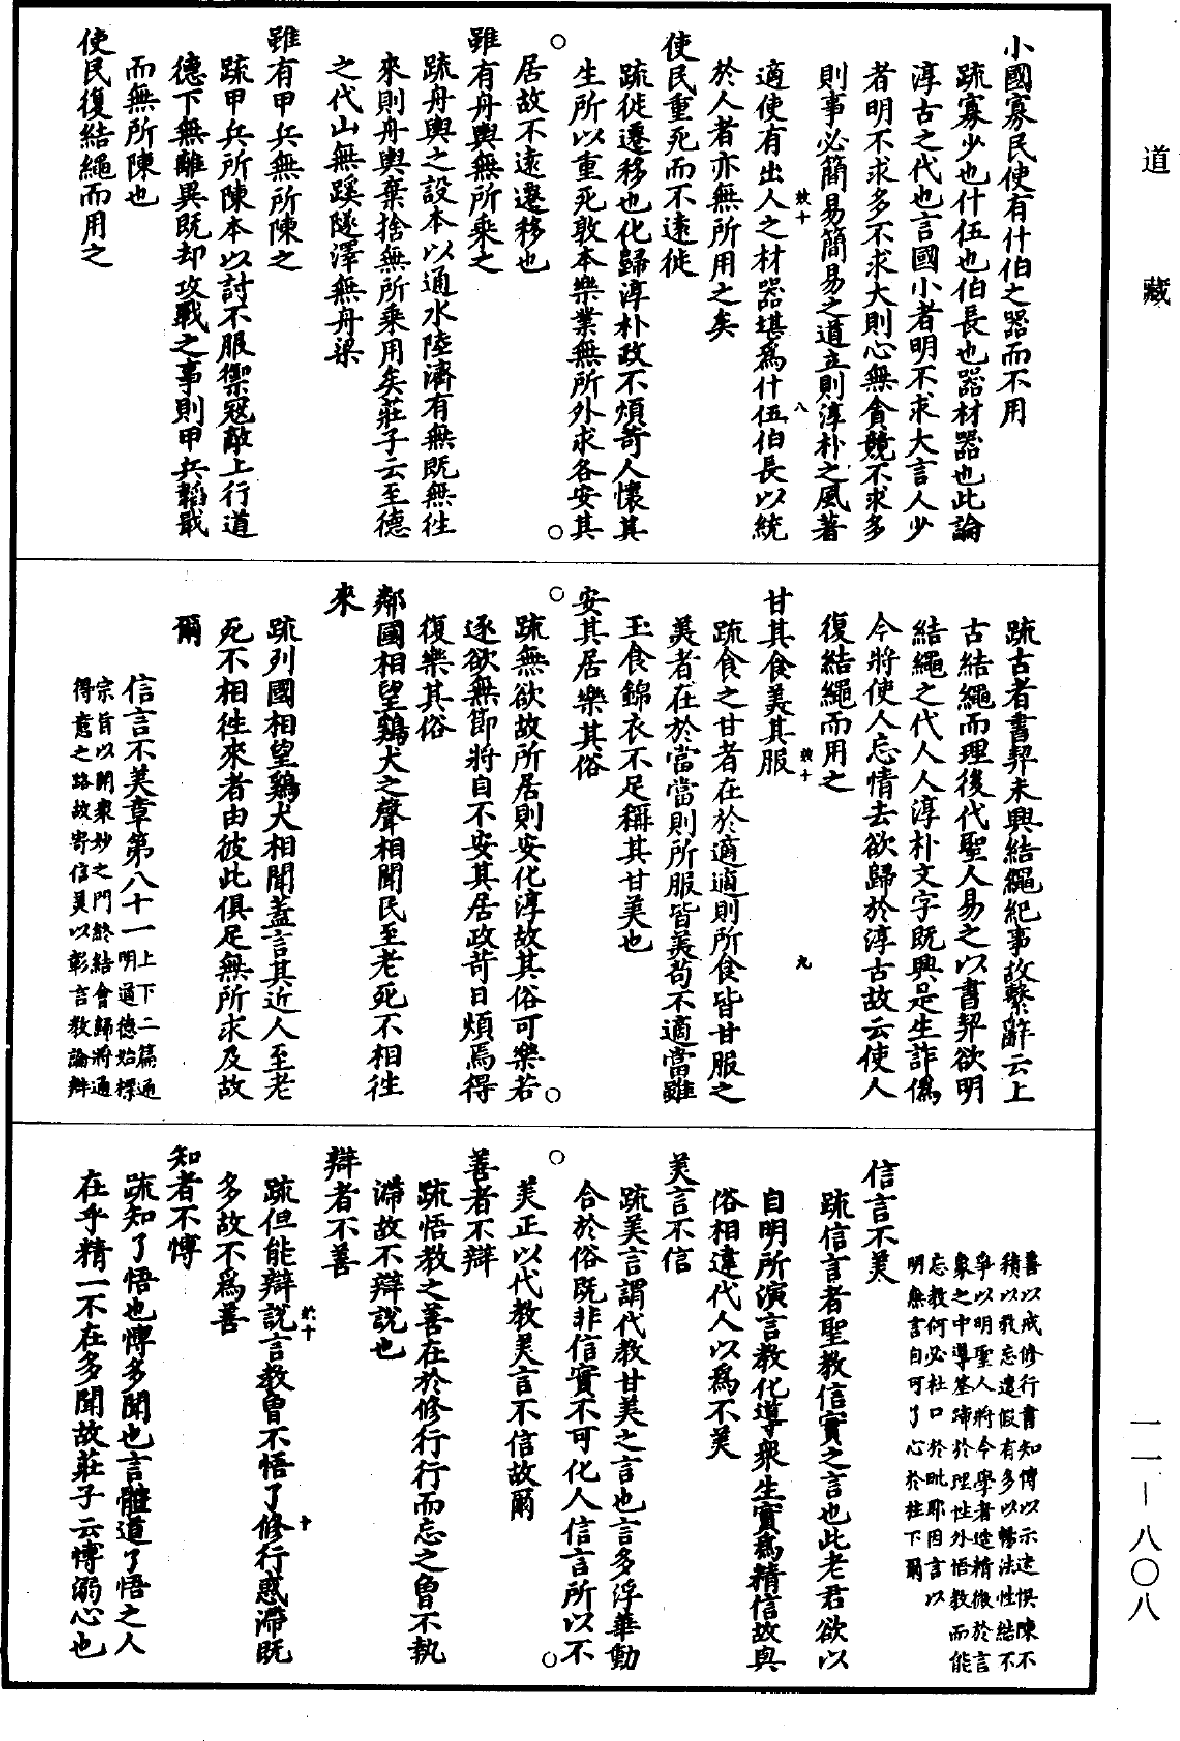 道藏
小國寡民使有什伯之器而不用
疏寡少也什伍也伯長也器材器也此論
淳古之代也言國小者明不求大言人少
者明不求多不求大則心無貪競不求多
則事必簡易簡易之道立則淳朴之風著
適使有出人之材器堪爲什伍伯長以統
於人者亦無所用之矣
使民重死而不遠徙
疏徙遷移也化歸淳朴政不煩苛人懷其
生所以重死敦本樂業無所外求各安其
居故不遠遷移也
雖有舟輿無所乘之
疏舟輿之設本以通水陸濟有無既無往
來則舟輿棄捨無所乘用矣莊子云至德
之代山無蹊隧澤無舟梁
雖有甲兵無所陳之
疏甲兵所陳本以討不服禦寇敵上行道
德下無離異既却攻戰之事則甲兵韜戢
而無所陳也
使民復結繩而用之
疏古者書契未興結繩紀事故繫辭云上
古結繩而理後代聖人易之以書契欲明
結繩之代人人淳朴文字既興是生詐僞
今將使人忘情去欲歸於淳古故云使人
復結繩而用之
甘其食美其服
疏食之甘者在於適適則所食皆甘服之
美者在於當當則所服皆美苟不適當雖
玉食錦衣不足稱其甘美也
安其居樂其俗
疏無欲故所居則安化淳故其俗可樂若
逐欲無節將自不安其居政苛日煩焉得
復樂其俗
鄰國相望鷄犬之聲相聞民至老死不相往
來
疏列國相望鷄犬相聞蓋言其近人至老
死不相往來者由彼此俱足無所求及故
爾
信言不美章第八十一
上下二篇通
明道德始標
宗旨以開衆妙之門終結會歸將通
得意之路故寄信美以彰言教論辯
善以戒修行書知博以示迷悞陳不
積以教忘遣假有多以暢法性結不
爭以明聖人將令學者造精微於言
象之中導筌蹄於理性外悟教而能
忘教何必杜口於毗耶因言以
明無言自可了心於柱下爾
信言不美
疏信言者聖教信實之言也此老君欲以
自明所演言教化導衆生實爲精信故與
俗相違代人以爲不美
美言不信
疏美言謂代教甘美之言也言多浮華動
合於俗既非信實不可化人信言所以不
美正以代教美言不信故爾
善者不辯
疏悟教之善在於修行行而忘之曾不執
滯故不辯說也
辯者不善
疏但能辯說言教曾不悟了修行惑滯既
多故不爲善
知者不博
疏知了悟也博多聞也言體道了悟之人
在乎精一不在多聞故莊子云博溺心也
一一—八〇八